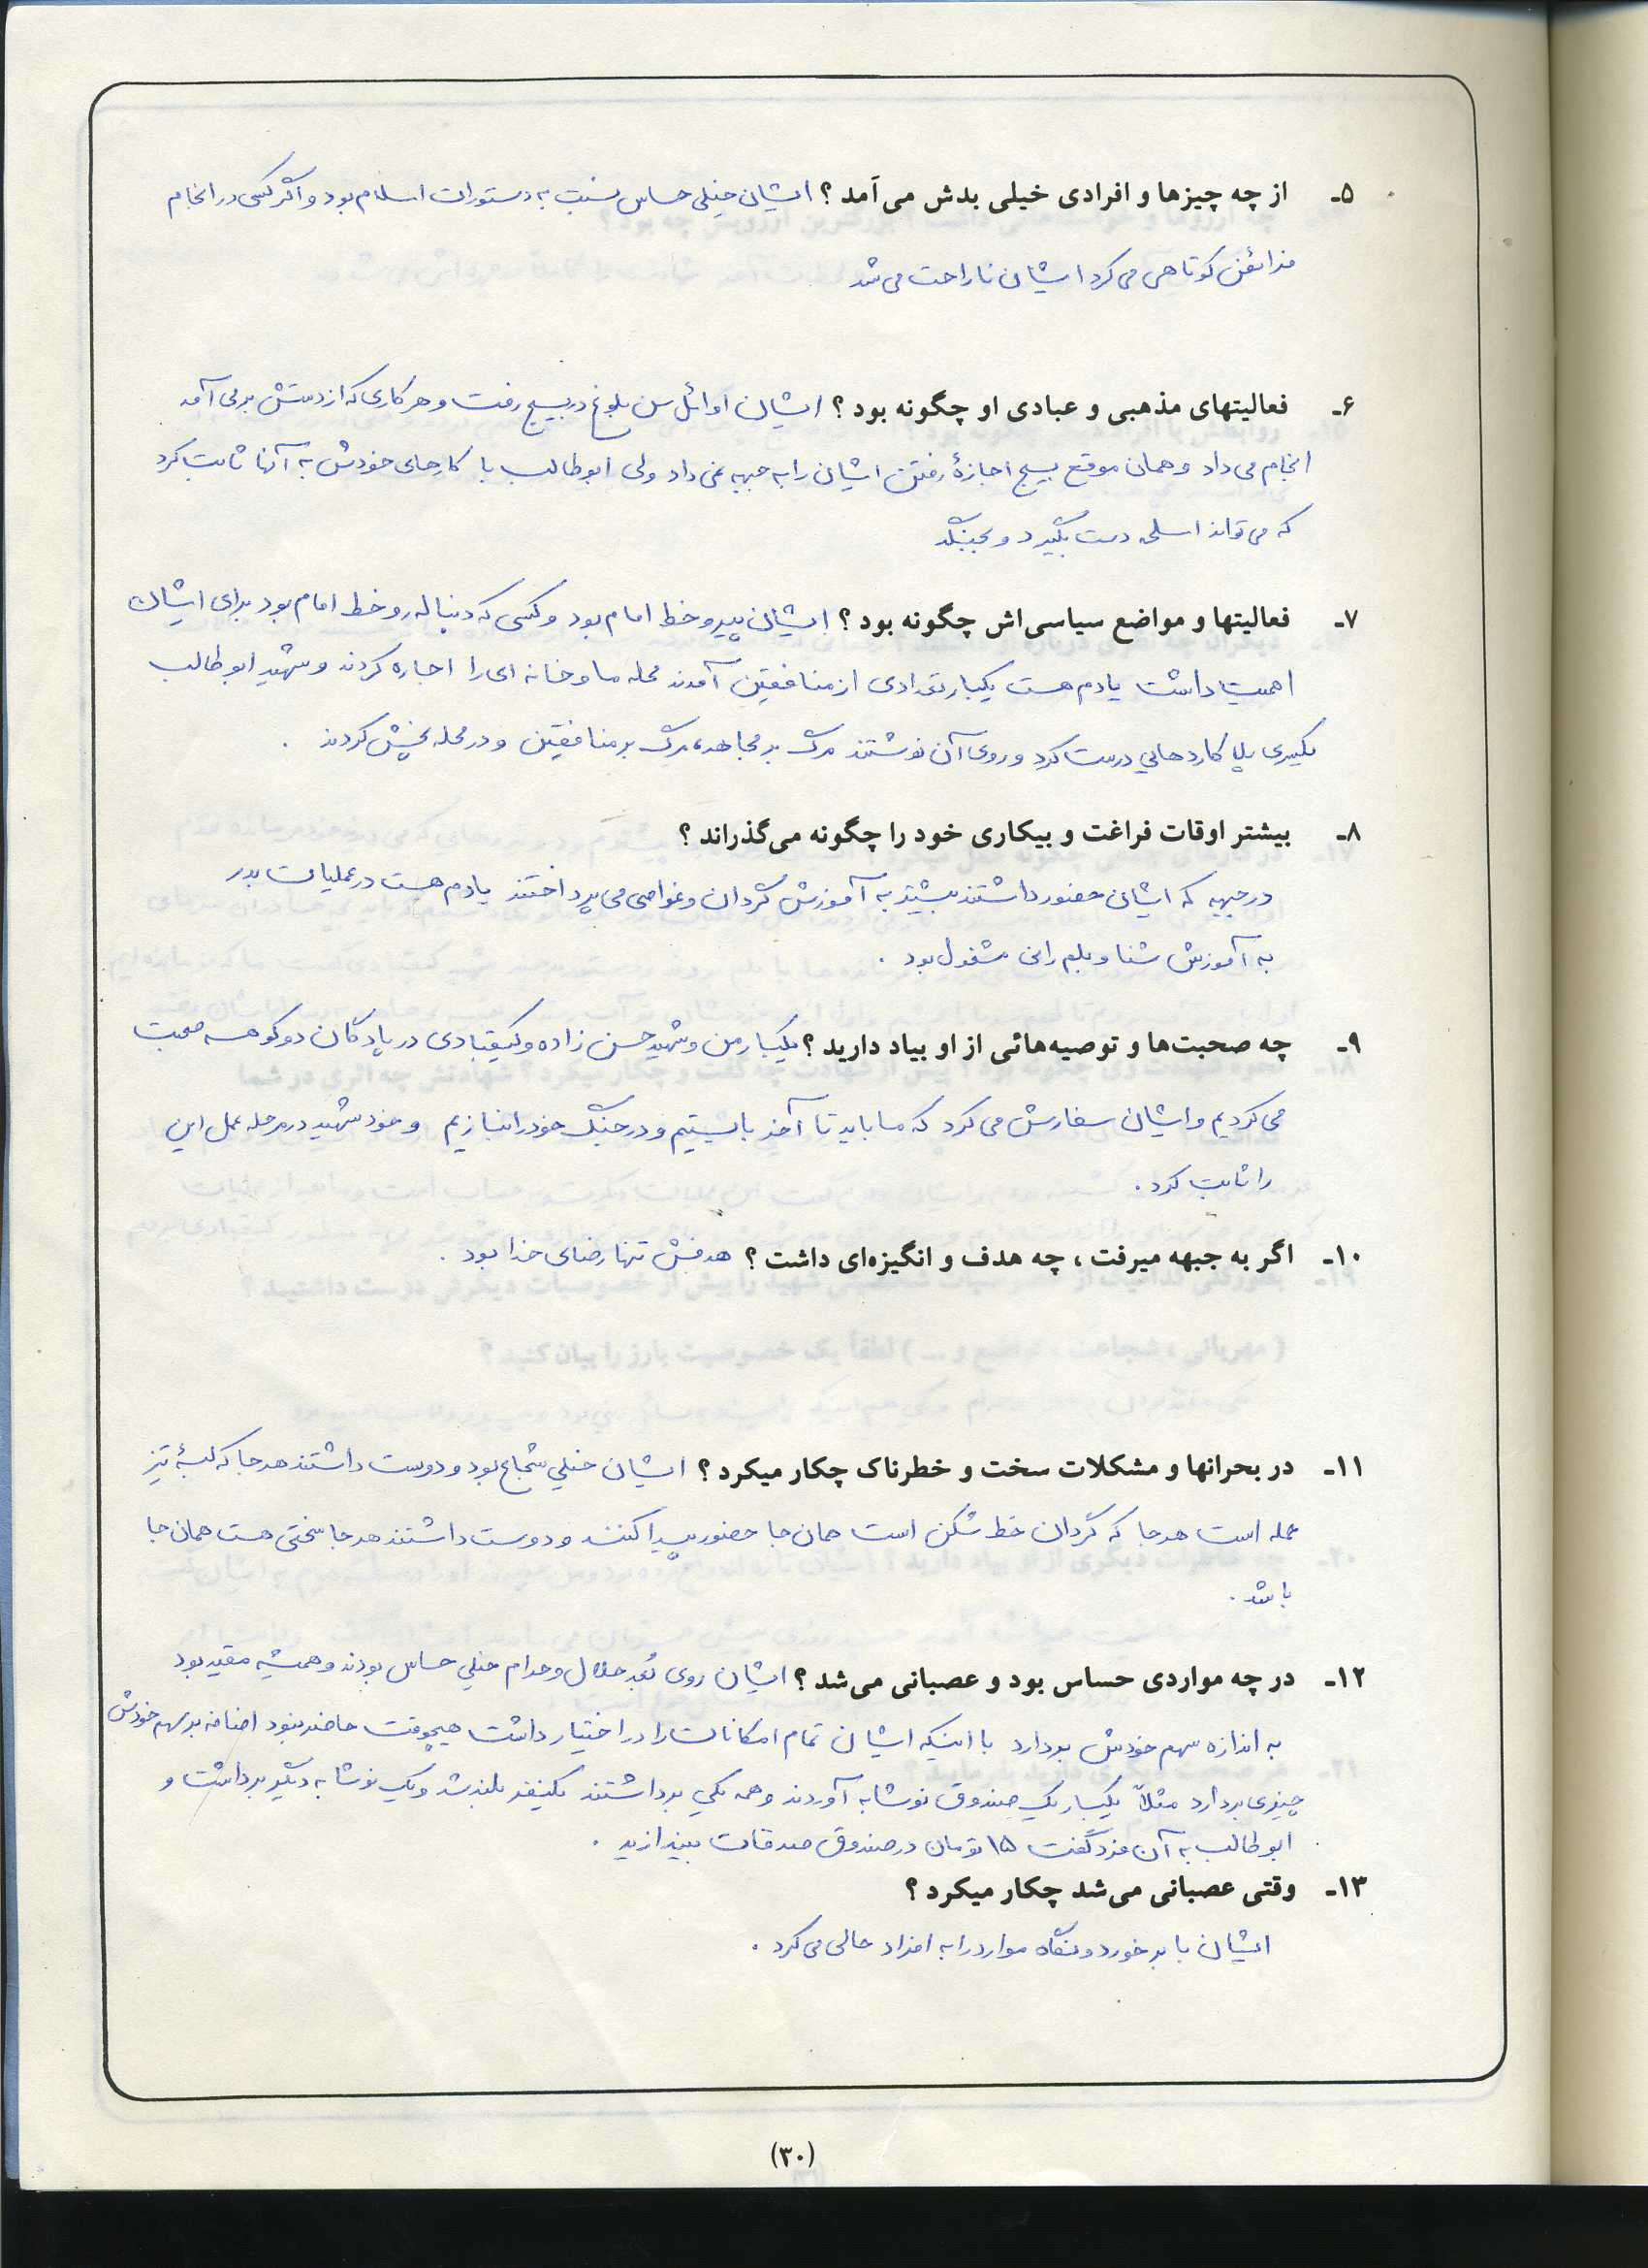 ۵ـ از چه چیزها و افرادی خیلی بدش می‌آمد ؟ ایشان خیلی حساس نسبت به دستورات اسلام بود و اگر کسی در انجام
فرائض کوتاهی می‌کرد ایشان ناراحت می‌شد
۶ـ فعالیتهای مذهبی و عبادی او چگونه بود ؟ ایشان اوائل سن بلوغ در بسیج رفت و هر کاری که از دستش برمی‌آمد
انجام می‌داد و همان موقع بسیج اجازهٔ رفتن ایشان را به جبهه نمی‌داد ولی ابوطالب با کارهای خودش به آنها ثابت کرد
که می‌تواند اسلحه دست بگیرد و بجنگد
۷ـ فعالیتها و مواضع سیاسی‌اش چگونه بود ؟ ایشان پیرو خط امام بود و کسی که دنباله رو خط امام بود برای ایشان
اهمیت داشت یادم هست یکبار تعدادی از منافقین آمدند محله ما و خانه ای را اجاره کردند و شهید ابوطالب
پلاکاردهایی درست کرد و روی آن نوشتند مرگ بر مجاهد، مرگ بر منافقین و در محله پخش کردند .
۸ـ بیشتر اوقات فراغت و بیکاری خود را چگونه می‌گذراند ؟
در جبهه که ایشان حضور داشتند بیشتر به آموزش گردان و غواصی می‌پرداختند یادم هست در عملیات بدر
به آموزش شنا و بلم رانی مشغول بود .
۹ـ چه صحبت‌ها و توصیه‌هائی از او بیاد دارید ؟ یکبار من و شهید حسن زاده و کیقبادی در پادگان دوکوهه صحبت
می‌کردیم و ایشان سفارش می‌کرد که ما باید تا آخر بایستیم و در جنگ خود را نبازیم و خود شهید در مرحله عمل این
را ثابت کرد .
۱۰ـ اگر به جبهه میرفت ، چه هدف و انگیزه‌ای داشت ؟ هدفش تنها رضای خدا بود .
۱۱ـ در بحرانها و مشکلات سخت و خطرناک چکار میکرد ؟ ایشان خیلی شجاع بود و دوست داشتند هر جا که لبهٔ تیز
حمله است هر جا که گردان خط شکن است همان جا حضور پیدا کنند و دوست داشتند هر جا سختی هست همان جا
باشد .
۱۲ـ در چه مواردی حساس بود و عصبانی می‌شد ؟ ایشان روی بُعد حلال و حرام خیلی حساس بودند و همیشه مقید بود
به اندازه سهم خودش بردارد با اینکه ایشان تمام امکانات را در اختیار داشت هیچوقت حاضر نبود اضافه بر سهم خودش
چیزی بردارد مثلاً یکبار یک صندوق نوشابه آوردند و همه یکی برداشتند یکنفر بلند شد و یک نوشابه دیگر برداشت و
ابوطالب به آن فرد گفت ۱۵ تومان در صندوق صدقات بیندازید .
۱۳ـ وقتی عصبانی می‌شد چکار میکرد ؟
ایشان با برخورد و نگاه موارد را به افراد حالی می‌کرد .
(۳۰)